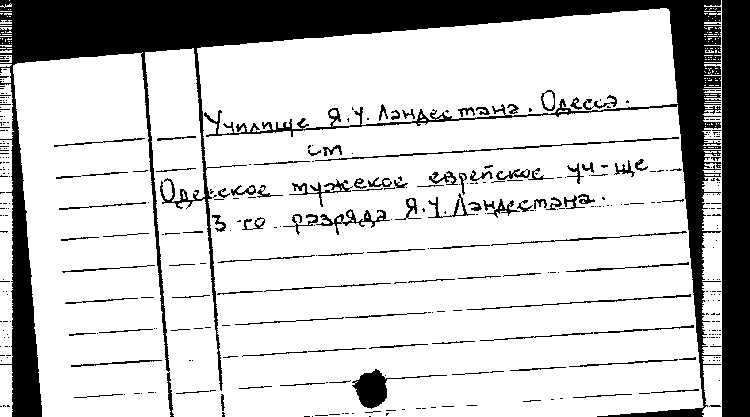 Училище Я.У. Ландесмана. Одесса.
см.
Одесское мужское еврейское уч-ще
3-го разряда Я.У. Ландесмана.